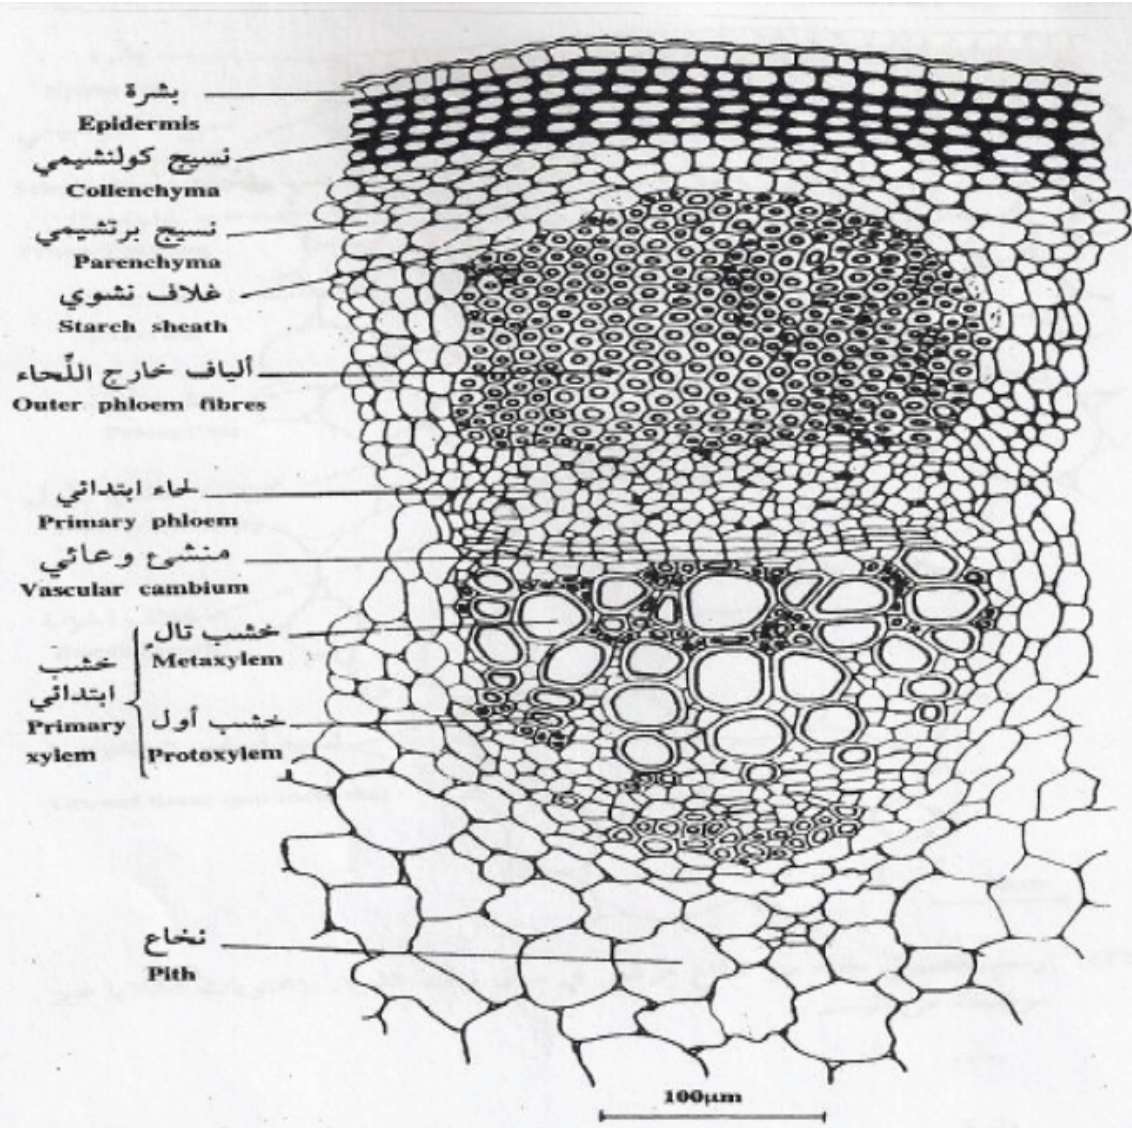 بشرة
Epidermis
نسيج كولنشيمي
Collenchyma
نسيج برنشيمي
Parenchyma
غلاف نشوي
Starch sheath
ألياف خارج اللّحاء
Outer phloem fibres
لحاء ابتدائي
Primary phloem
منشئ وعائي
Vascular cambium
خشب تال
Metaxylem
خشب
ابتدائي
Primary
xylem
خشب أول
Protoxylem
نخاع
Pith
100μm